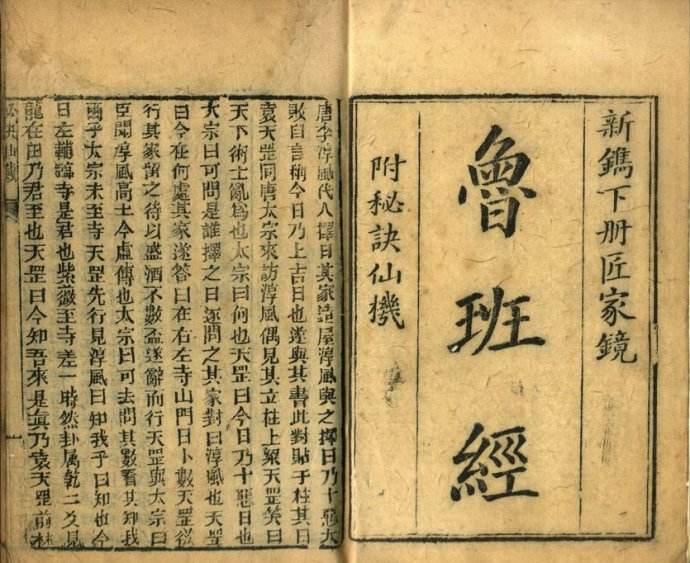 新鐫下册匠家鏡
魯班經
附秘訣仙機
唐李淳風代人擇日其家造屋淳風與之擇日乃十惡大
敗自言稱今日乃上吉日也遂與其書此對貼于柱其日
袁天罡同唐太宗來訪淳風偶見其立柱上梁天罡笑曰
天下術士亂爲也太宗曰何也天罡曰今日乃十惡日也
太宗曰可問是誰擇之日遂問之其家對曰淳風也天罡
曰今在何處其家遂答曰在右左寺山門日卜數天罡從
行其家留之待以盛酒不數盃遂辭而行天罡與太宗曰
臣聞淳風高士今虛傳也太宗曰可去問其數看其知我
兩乎太宗未至寺天罡先行見淳風曰知我乎曰知也今
日左輔臨寺是君也紫薇至寺差一時然卦属乾二爻見
龍在田乃君至也天罡曰今知吾來是眞乃袁天罡前